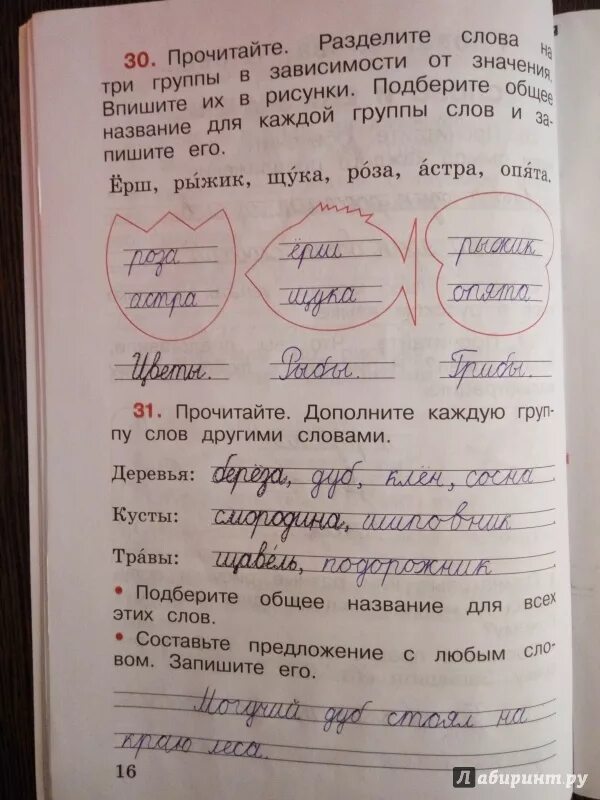 30. Прочитайте. Разделите слова на
три группы в зависимости от значения.
Впишите их в рисунки. Подберите общее
название для каждой группы слов и за-
пишите его.
Ёрш, ры́жик, щу́ка, ро́за, а́стра, опя́та.
роза ёрш рыжик
астра щука опята
Цветы. Рыбы. Грибы.
31. Прочитайте. Дополните каждую груп-
пу слов другими словами.
Деревья: берёза, дуб, клён, сосна
Кусты: смородина, шиповник
Тра́вы: щаве́ль, подорожник
• Подберите общее название для всех
этих слов.
• Составьте предложение с любым сло-
вом. Запишите его.
Могучий дуб стоял на
краю леса.
16
Лабиринт.ру